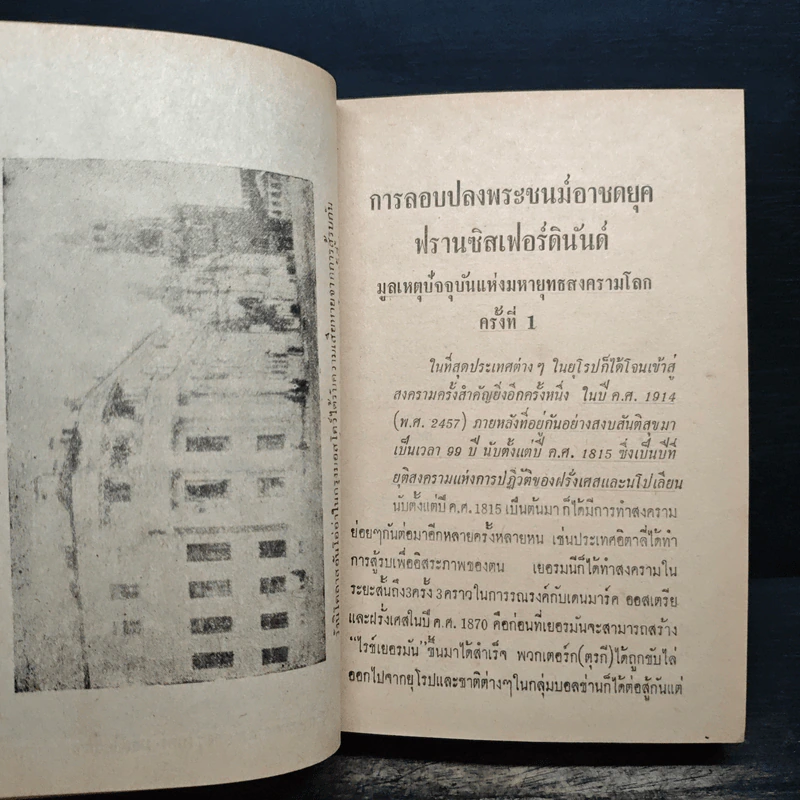 การลอบปลงพระชนม์อาชดยุค
ฟรานซิสเฟอร์ดินันด์
มูลเหตุปัจจุบันแห่งมหายุทธสงครามโลก
ครั้งที่ 1
ในที่สุดประเทศต่าง ๆ ในยุโรปก็ได้โจนเข้าสู่
สงครามครั้งสำคัญยิ่งอีกครั้งหนึ่ง ในปี ค.ศ. 1914
(พ.ศ. 2457) ภายหลังที่อยู่กันอย่างสงบสันติสุขมา
เป็นเวลา 99 ปี นับตั้งแต่ปี ค.ศ. 1815 ซึ่งเป็นปีที่
ยุติสงครามแห่งการปฏิวัติของฝรั่งเศสและนโปเลียน
นับตั้งแต่ปี ค.ศ. 1815 เป็นต้นมา ก็ได้มีการทำสงคราม
ย่อยๆกันต่อมาอีกหลายครั้งหลายหน เช่นประเทศอิตาลี่ได้ทำ
การสู้รบเพื่ออิสระภาพของตน เยอรมนีก็ได้ทำสงครามใน
ระยะสั้นถึง3ครั้ง 3คราวในการรณรงค์กับเดนมาร์ค ออสเตรีย
และฝรั่งเศสในปี ค.ศ. 1870 คือก่อนที่เยอรมันจะสามารถสร้าง
“ไรช์เยอรมัน” ขึ้นมาได้สำเร็จ พวกเตอร์ก(ตุรกี)ได้ถูกขับไล่
ออกไปจากยุโรปและชาติต่างๆในกลุ่มบอลข่านก็ได้ต่อสู้กันแต่